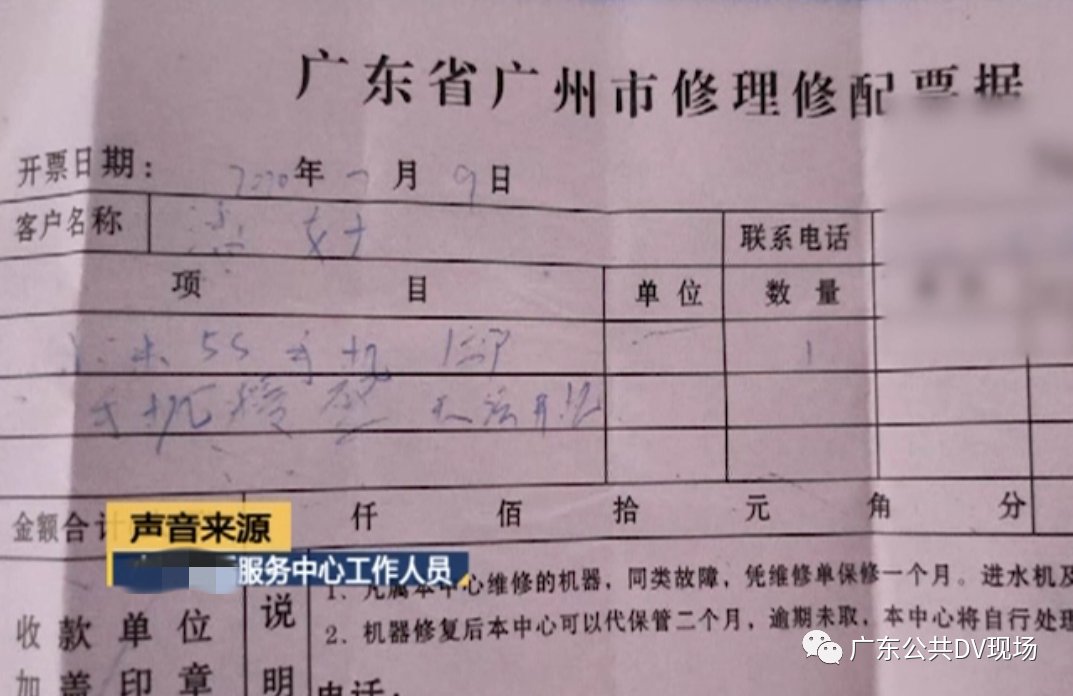 广东省广州市修理修配票据
开票日期： 2020年 月 9日
客户名称 女士 联系电话
项 目 单位 数量
小米5S手机 1部 1
手机 无法开机
金额合计 仟 佰 拾 元 角 分
声音来源
服务中心工作人员
1、凡属本中心维修的机器，同类故障，凭维修单保修一个月。进水机及
2、机器修复后本中心可以代保管二个月，逾期未取，本中心将自行处理
收款单位 说
加盖印章 明
电话：
广东公共DV现场